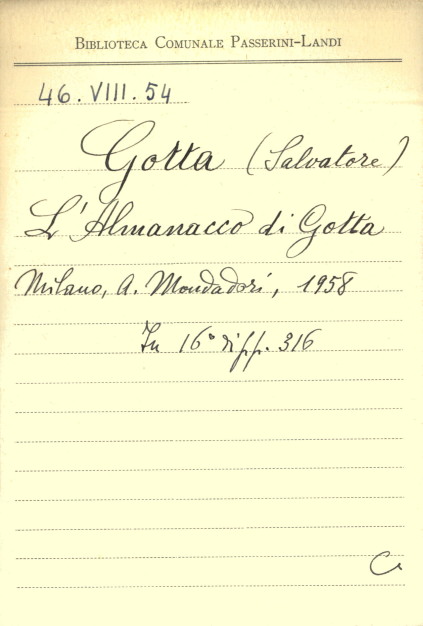 BIBLIOTECA COMUNALE PASSERINI-LANDI
46.VIII.54
Gotta (Salvatore)
L'Almanacco di Gotta
Milano, A. Mondadori, 1958
In 16° di pp. 316